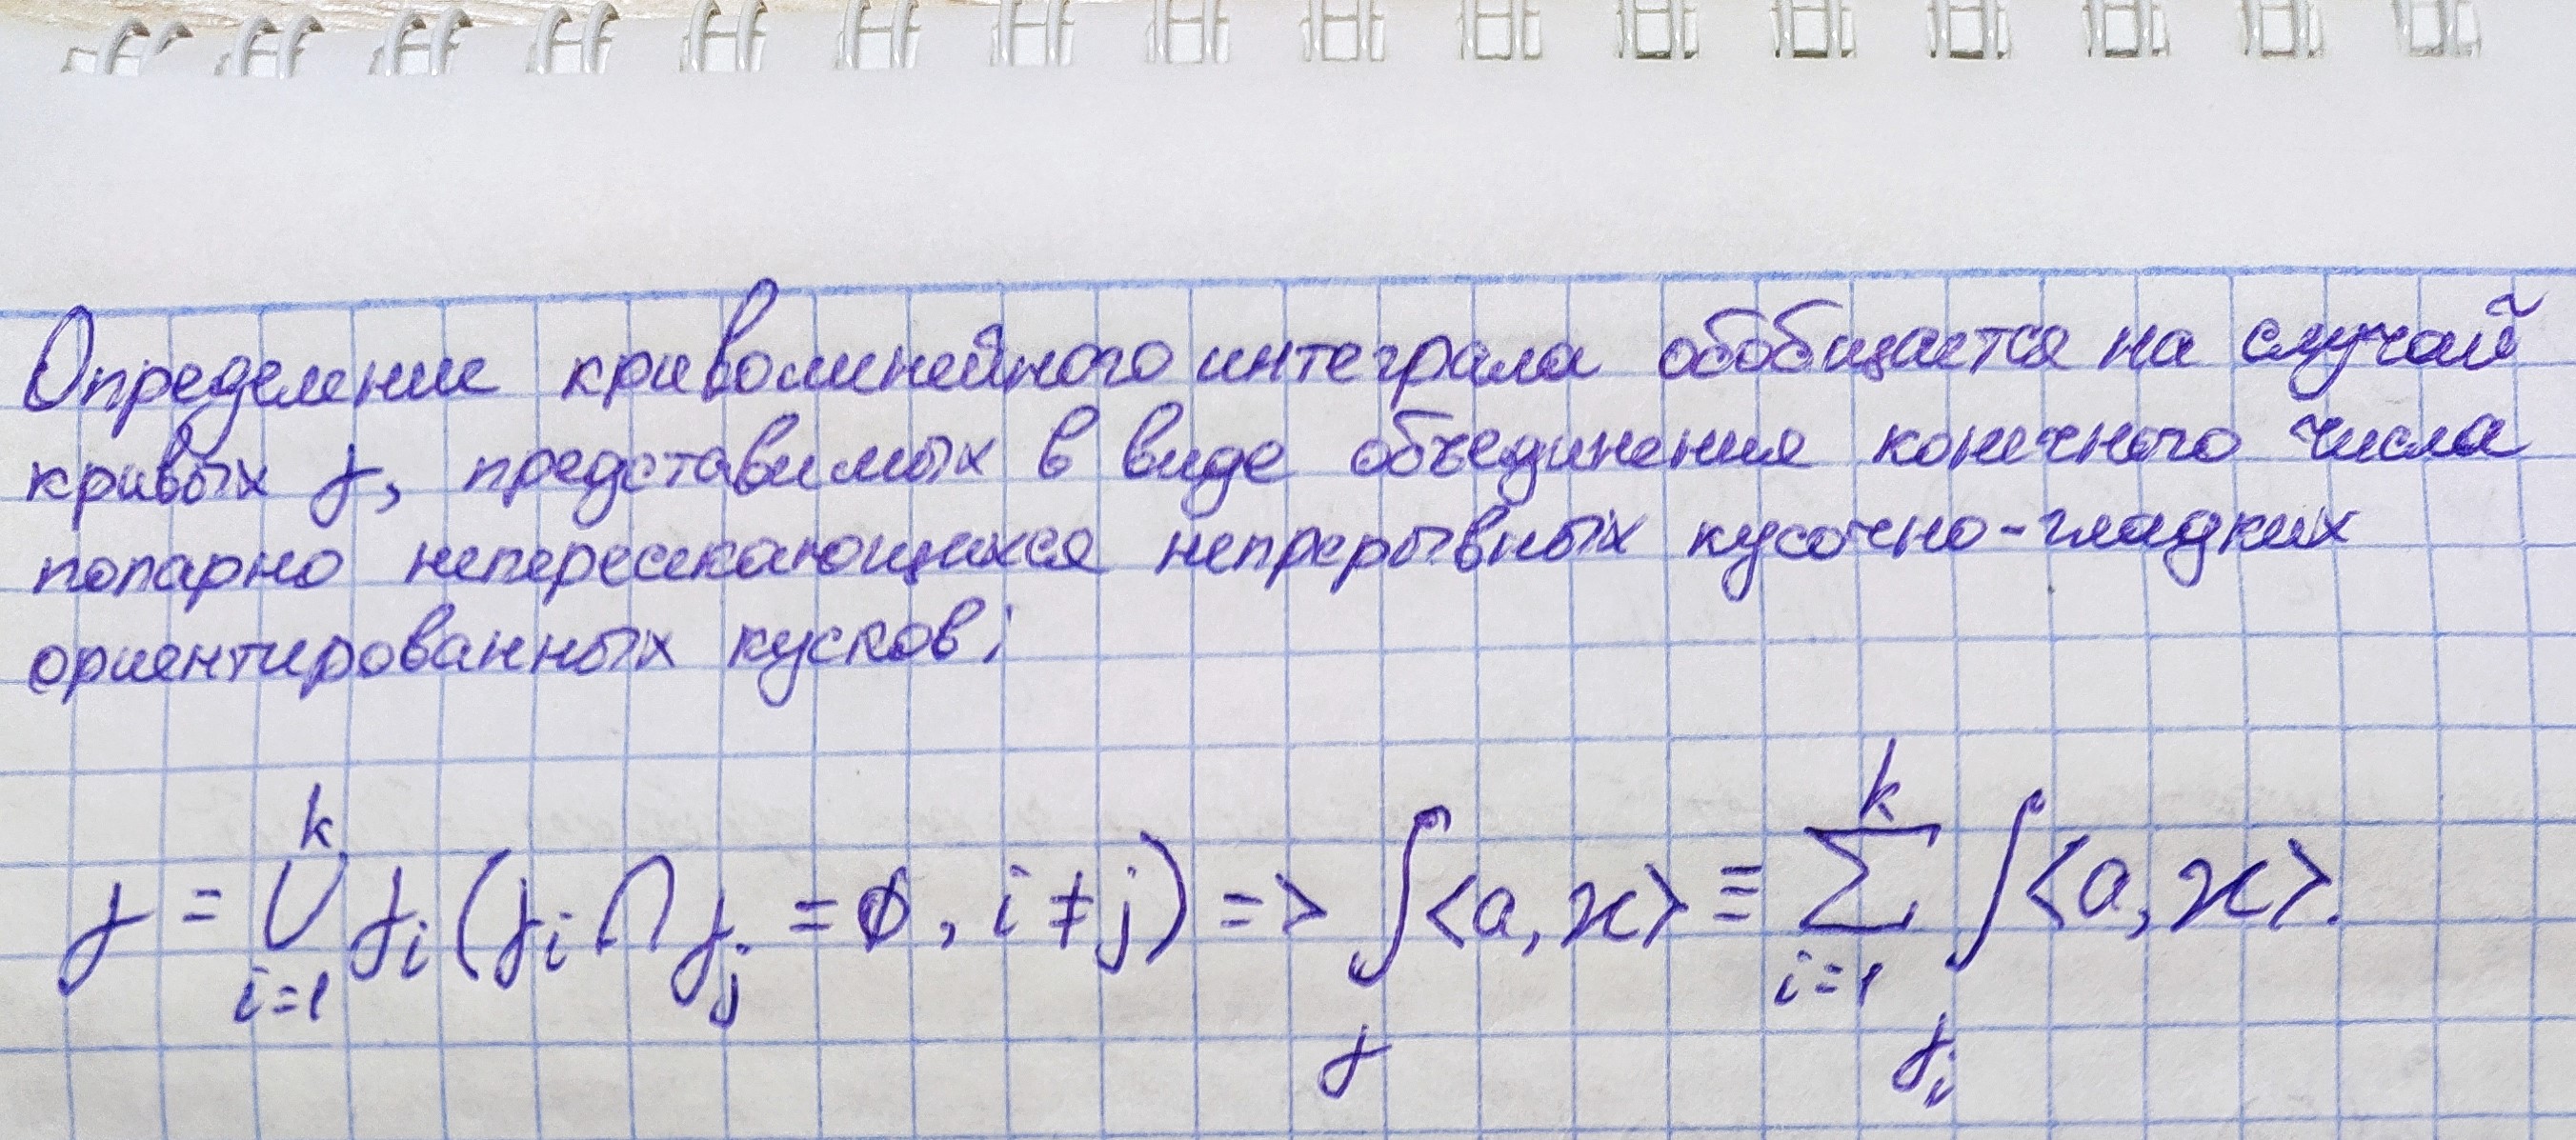 Определение криволинейного интеграла обобщается на случай
кривых γ, представимых в виде объединения конечного числа
попарно непересекающихся непрерывных кусочно-гладких
ориентированных кусков:
γ = ⋃_{i=1}^{k} γ_i (γ_i ∩ γ_j = ∅, i ≠ j) => ∫_γ <a, x> ≡ ∑_{i=1}^{k} ∫_{γ_i} <a, x>.